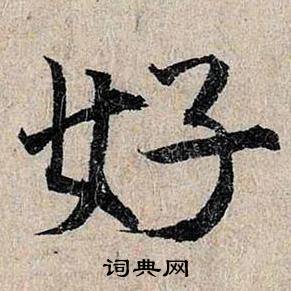 好
词典网